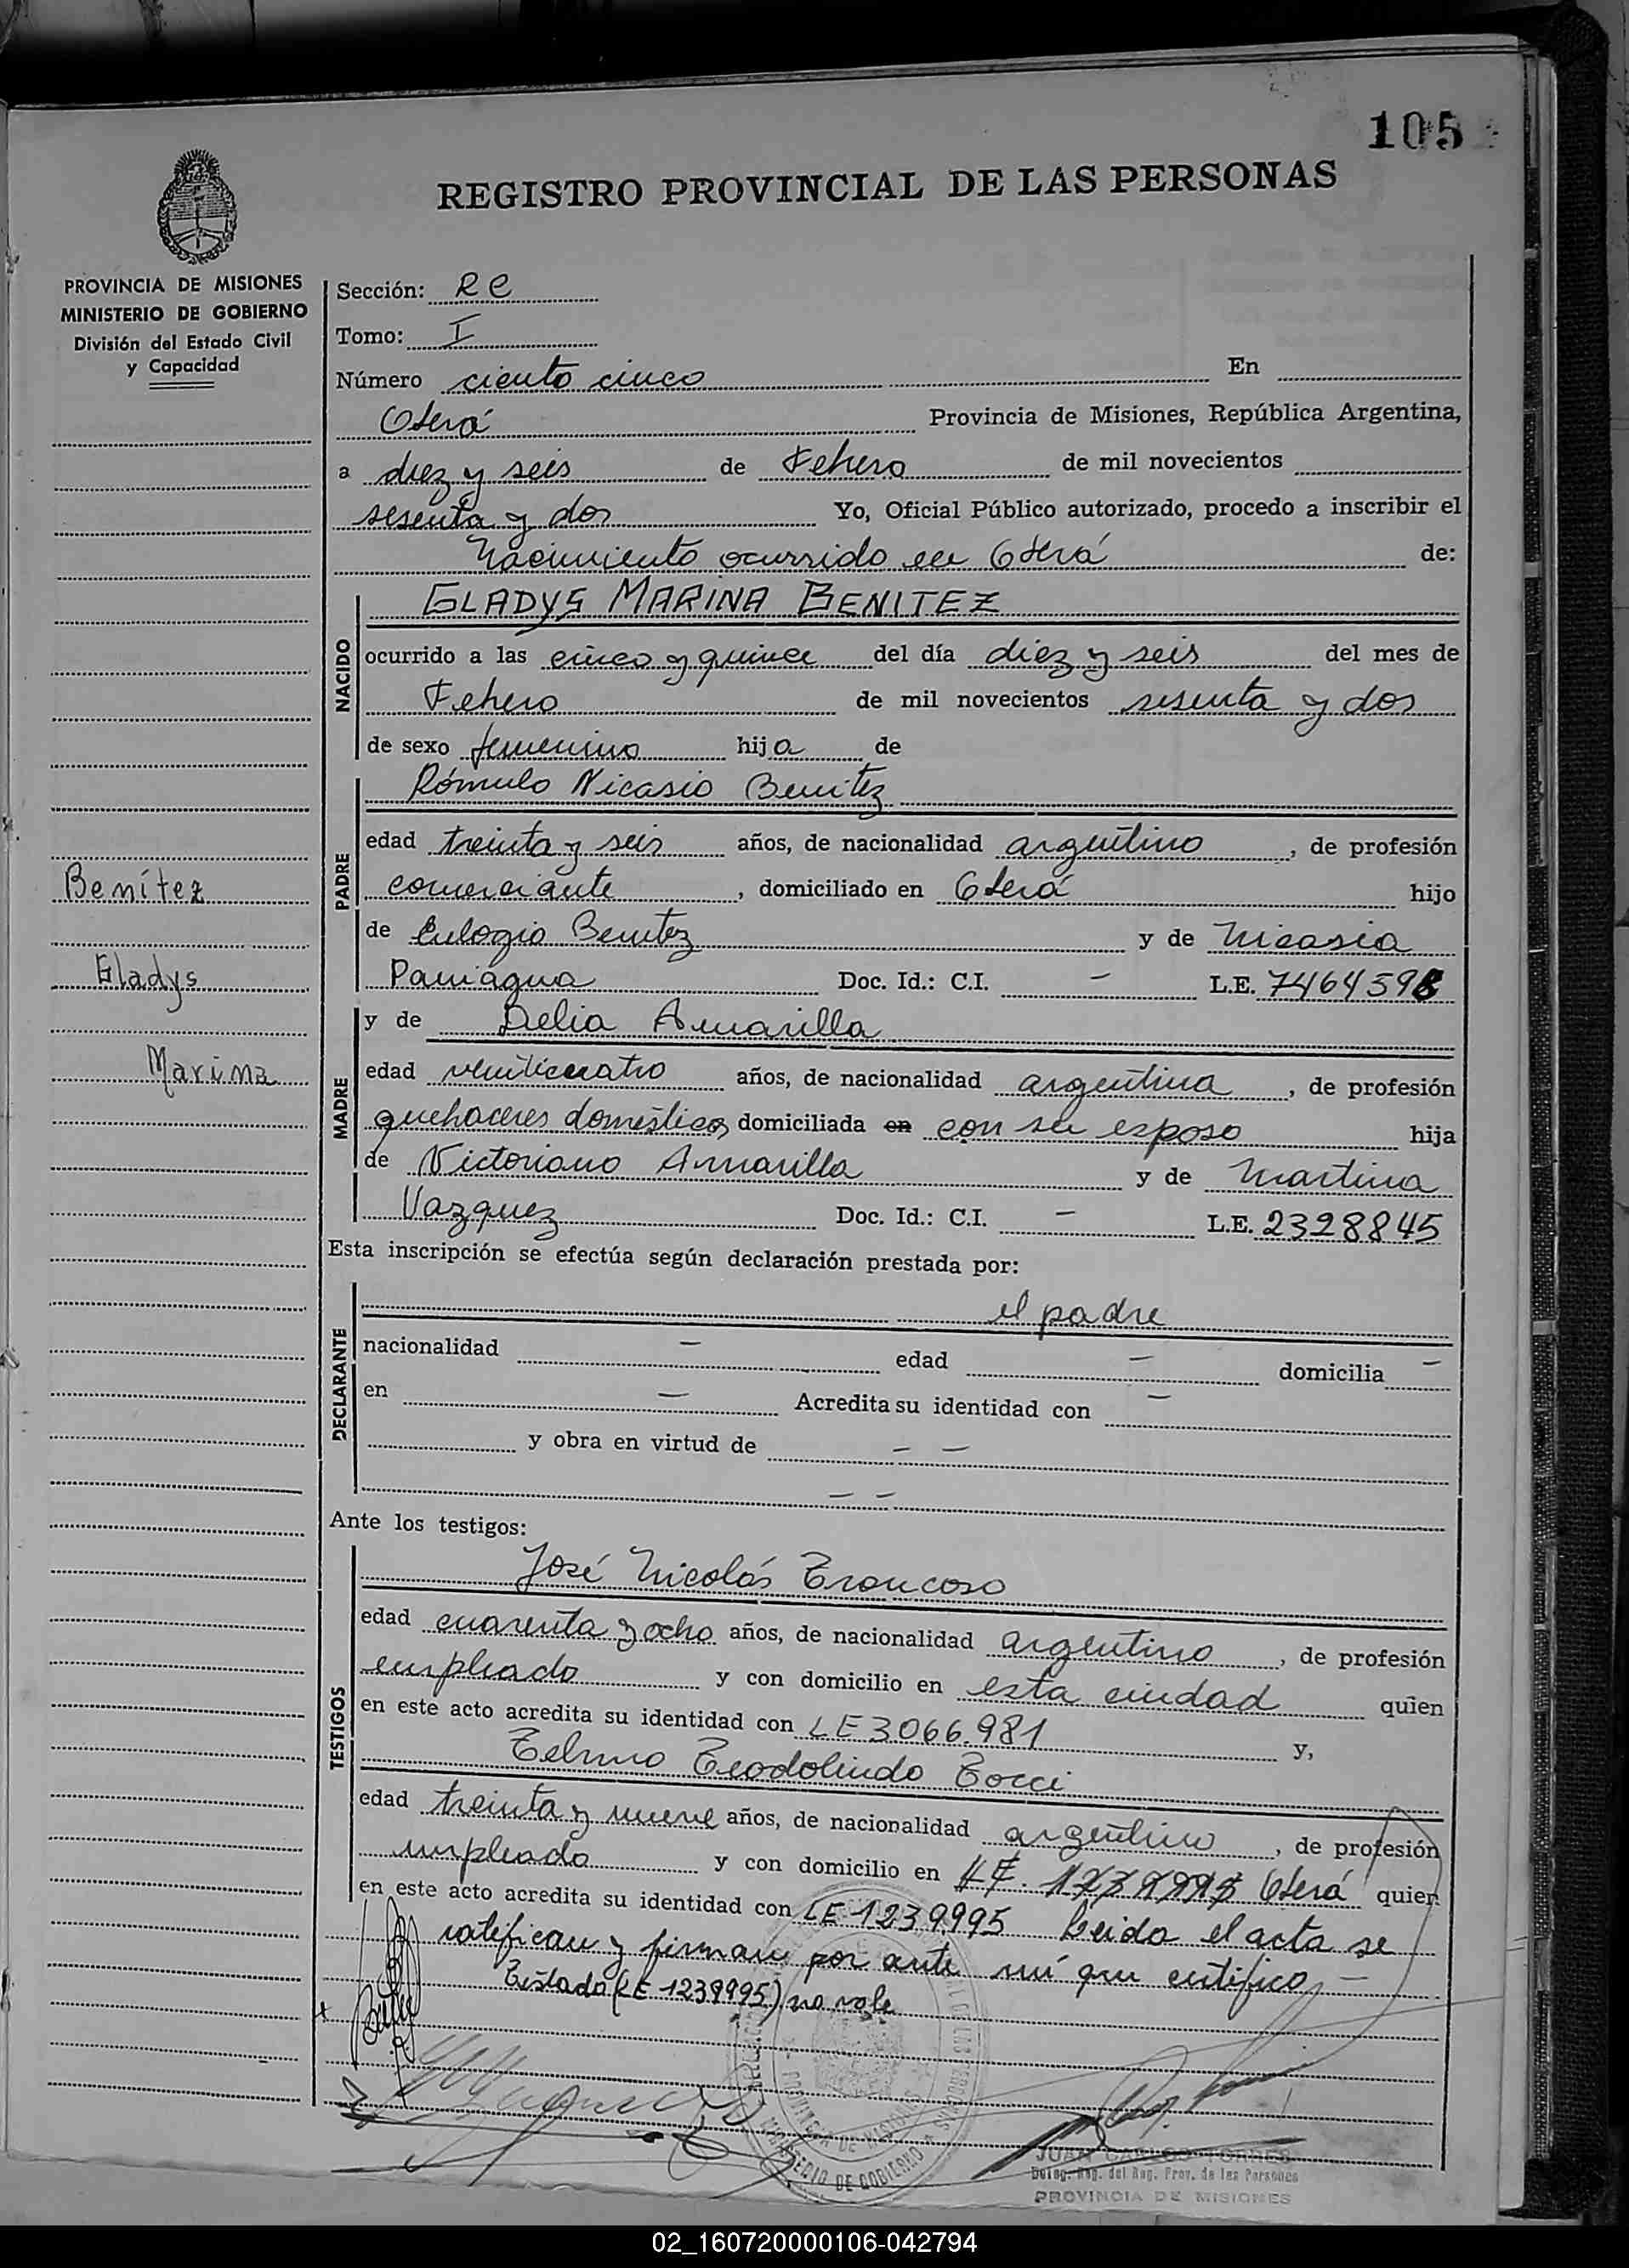 105
REGISTRO PROVINCIAL DE LAS PERSONAS
PROVINCIA DE MISIONES
MINISTERIO DE GOBIERNO
División del Estado Civil
y Capacidad
Sección: RC
Tomo: I
Número ciento cinco En
Oberá Provincia de Misiones, República Argentina,
a diez y seis de Febrero de mil novecientos
sesenta y dos Yo, Oficial Público autorizado, procedo a inscribir el
Nacimiento ocurrido en Oberá de:
NACIDO
GLADYS MARINA BENITEZ
ocurrido a las cinco y quince del día diez y seis del mes de
Febrero de mil novecientos sesenta y dos
de sexo femenino hija de
PADRE
Rómulo Nicasio Benitez
edad treinta y seis años, de nacionalidad argentino, de profesión
comerciante, domiciliado en Oberá hijo
de Eulogio Benitez y de Nicasia
Paniagua Doc. Id.: C.I. - L.E. 746459
Benítez
Gladys
Marina
MADRE
y de Delia Amarilla
edad venticuatro años, de nacionalidad argentina, de profesión
quehaceres domésticos domiciliada en con su esposo hija
de Victoriano Amarilla y de Martina
Vazquez Doc. Id.: C.I. - L.E. 2328845
Esta inscripción se efectúa según declaración prestada por:
DECLARANTE
el padre
nacionalidad - edad - domicilia -
en - Acredita su identidad con -
y obra en virtud de - -
- -
Ante los testigos:
TESTIGOS
José Nicolás Troncoso
edad cuarenta y ocho años, de nacionalidad argentino, de profesión
empleado y con domicilio en esta ciudad quien
en este acto acredita su identidad con LE 3066.981 y,
Telmo Teodolindo Tocci
edad treinta y nueve años, de nacionalidad argentino, de profesión
empleado y con domicilio en LE. 1239995 Oberá quien
en este acto acredita su identidad con LE 1239.995 Leida el acta se
ratifican y firman por ante mí que certifico, -
Testado (LE 1239995) no vale
PROVINCIA DE MISIONES
MINISTERIO DE GOBIERNO
JUAN CARLOS TORRES
Deleg. Reg. del Reg. Prov. de las Personas
PROVINCIA DE MISIONES
02_160720000106-042794